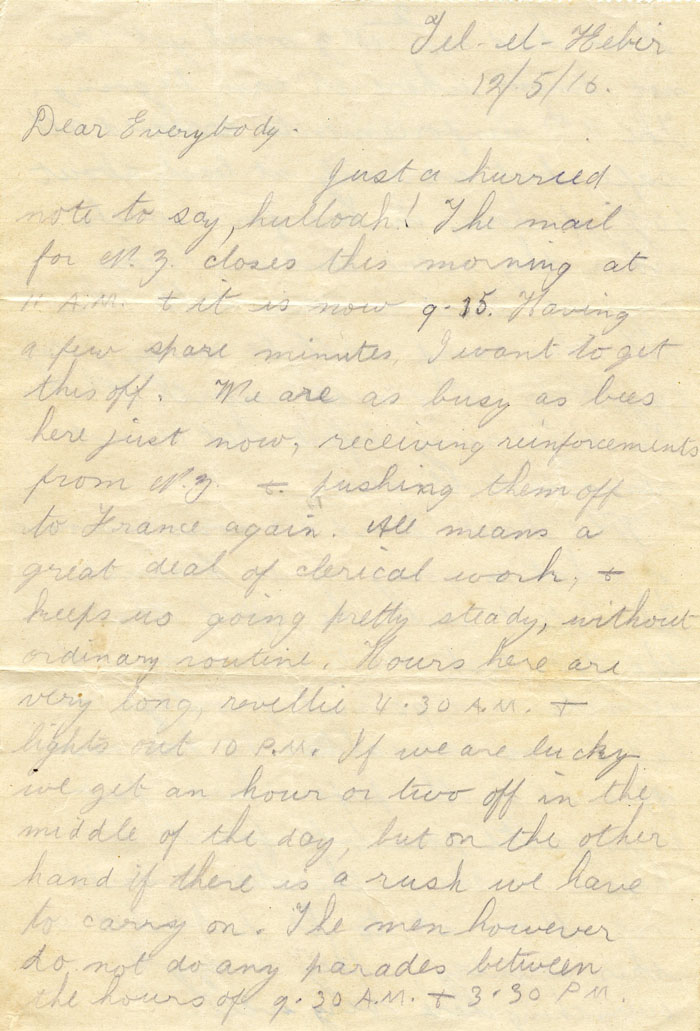 Tel-el-Kebir
12/5/16.
Dear Everybody.
Just a hurried
note to say, hulloah! The mail
for N.Z. closes this morning at
11 A.M. + it is now 9.35. Having
a few spare minutes, I want to get
this off. We are as busy as bees
here just now, receiving reinforcements
from N.Z. + pushing them off
to France again. All means a
great deal of clerical work, +
keeps us going pretty steady, without
ordinary routine. Hours here are
very long, revellie 4.30 A.M. +
lights out 10 P.M. If we are lucky
we get an hour or two off in the
middle of the day, but on the other
hand if there is a rush we have
to carry on. The men however
do not do any parades between
the hours of 9.30 A.M. + 3.30 P.M.